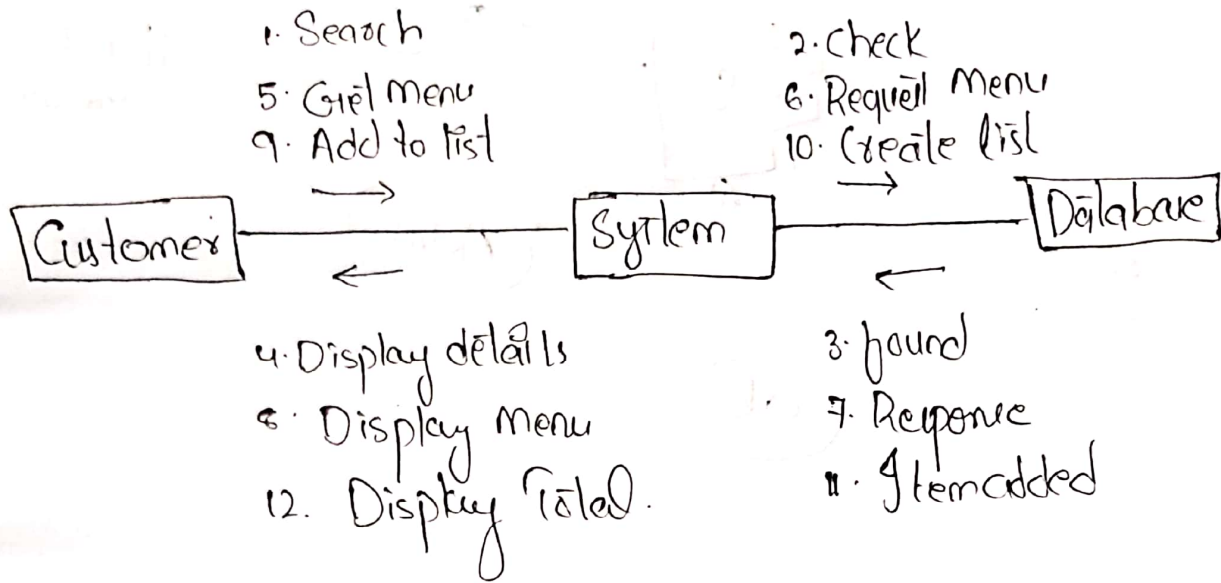 1. Search
5. Get menu
9. Add to list
2. Check
6. Request Menu
10. Create list
Customer
System
Database
4. Display details
8. Display menu
12. Display Total.
3. found
7. Response
11. Item added